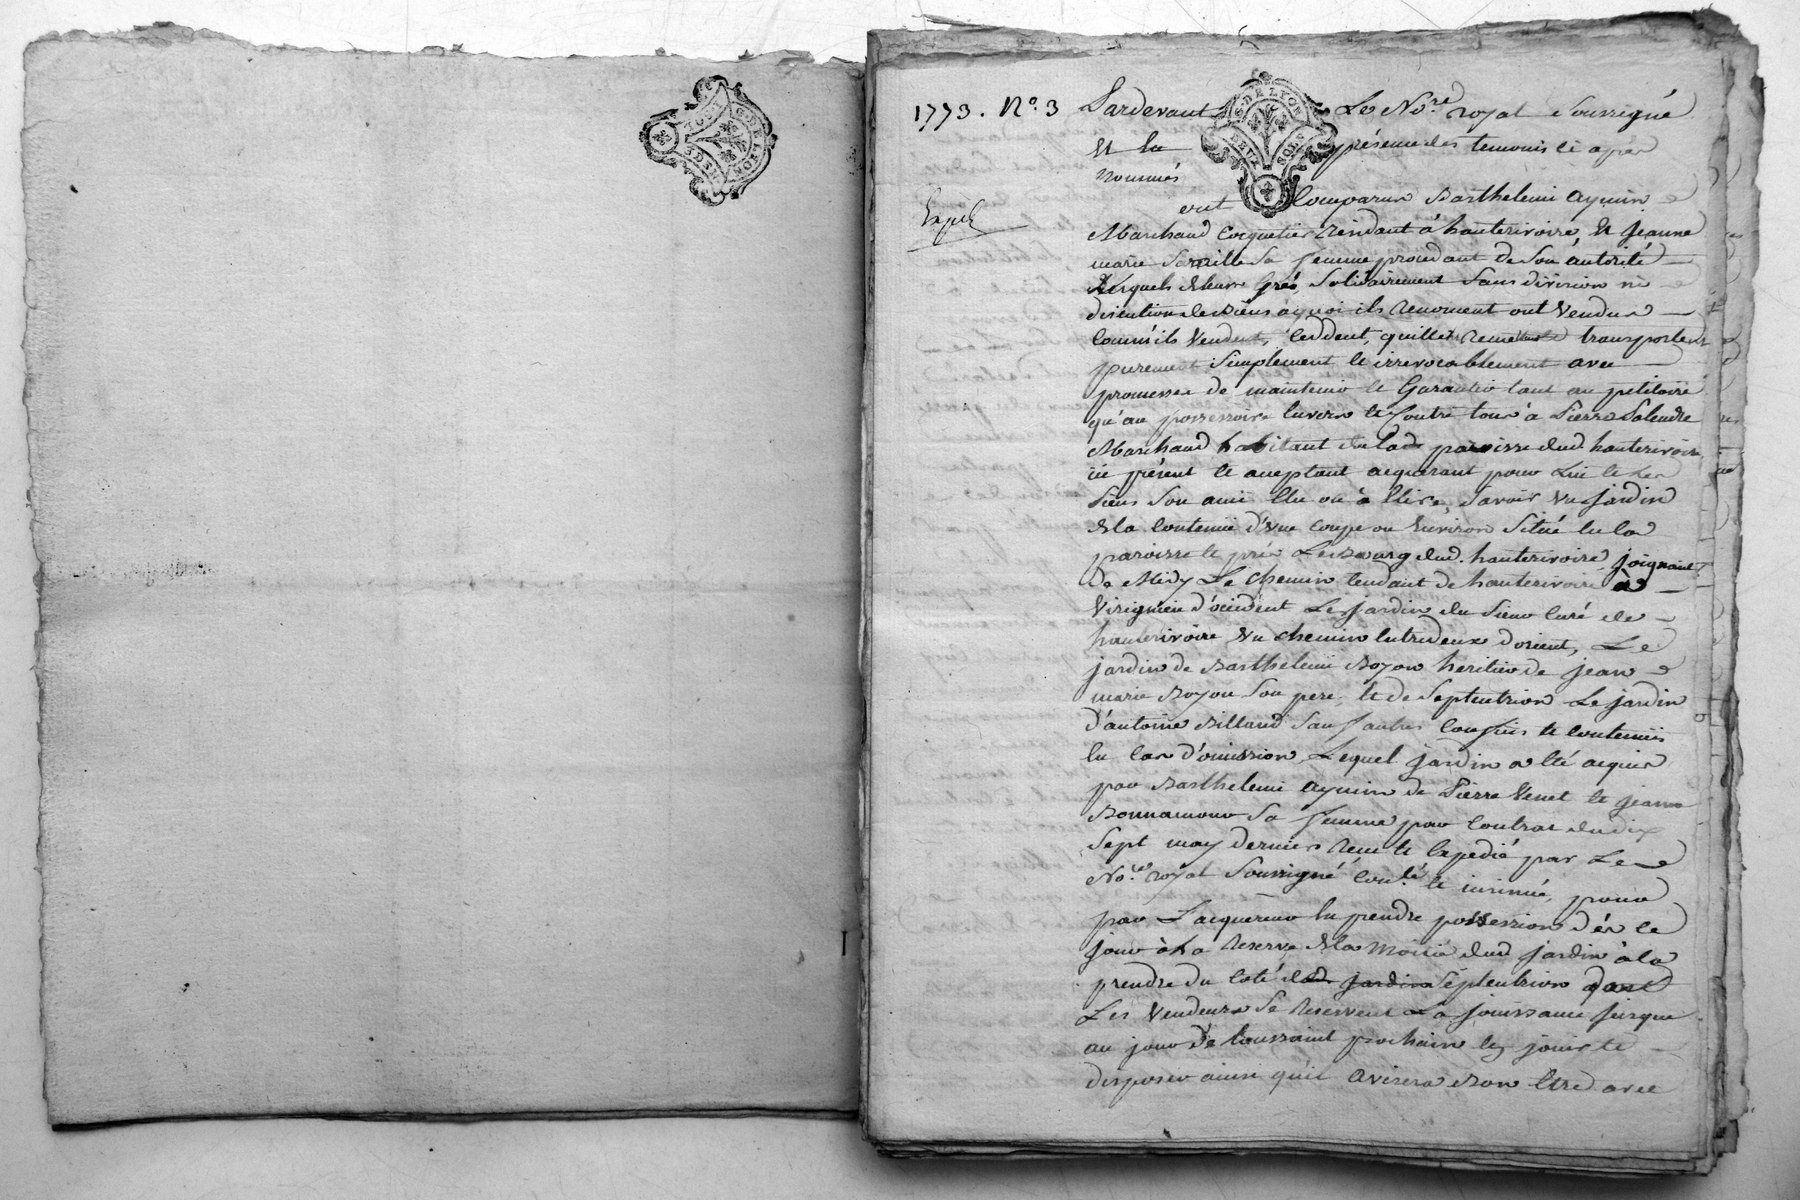 1773. No. 3
Pardevant Le Nore. royal Soussigné
Et En présence des temoins cÿ apres
nommés
G. DE LYON
DEUX SOLS
G. DE LYON
DEUX SOLS
Expéd
ont Comparu Barthelemi aymin
Marchand Cocquetier residant à hauterivoire, Et jeanne
marie Sa femme procedant de Son autorité
Lesquels de leur Gré, Solidairement Sans division ni
discution de biens a quoi ils renoncent ont Vendu
Comm'ils Vendent, Ceddent, quittent remettent transportent
purement Simplement Et irrevocablement avec
promesse de maintenir Et Garantir tant au petitoire
qu'au possessoire Envers Et Contre tous à Pierre
Marchand habitant En lade. paroisse dud hauterivoire
ici présent Et acceptant acquerant pour Lui Et Les
Siens Son ami Elu ou à Elire, Savoir Un jardin
de la Contenüe d'Une Coupe ou Environ Situé En la
paroisse Et près Le Bourg dud. hauterivoire, joignant
de Midy Le Chemin tendant de hauterivoire à
Virigneu d'occident Le jardin du Sieur Curé de
hauterivoire Un chemin Entredeux d'orient, Le
jardin de Barthelemi Boyon heritier de jean
marie Boyon Son pere, Et de Septentrion Le jardin
d'antoine Billaud Sauf autres Confins Et Contenües
En Cas d'omission, Lequel jardin a Eté acquis
par Barthelemi aymin de Pierre Venet Et jeanne
Bonnamour Sa femme par Contrat du dix
Sept may dernier recu Et Expedié par Le
Nore. royal Soussigné Conlé. Et insinué, pour
par L'acquereur En prendre possession dés Ce
jour à La reserve de la moitié dud jardin à la
prendre du Coté de jardin Séptentrion dont
Les Vendeurs Se reservent La jouissance jusque
au jour de toussaint prochain En jouir Et
disposer ainsi qu'il avisera Bon Etre avec